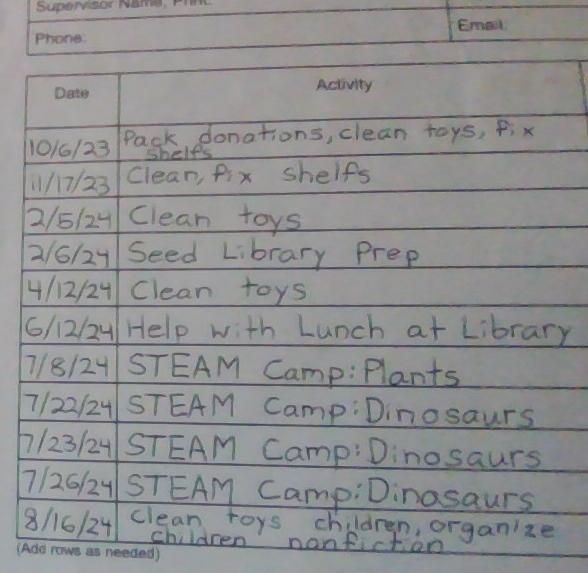 Supervisor Name, Print:
Phone: Email:
Date Activity
10/6/23 Pack donations, clean toys, fix
shelfs
11/17/23 Clean, fix shelfs
2/5/24 Clean toys
2/6/24 Seed Library Prep
4/12/24 Clean toys
6/12/24 Help with Lunch at Library
7/8/24 STEAM Camp: Plants
7/22/24 STEAM Camp: Dinosaurs
7/23/24 STEAM Camp: Dinosaurs
7/26/24 STEAM Camp: Dinosaurs
8/16/24 Clean toys children, organize
children nonfiction
(Add rows as needed)